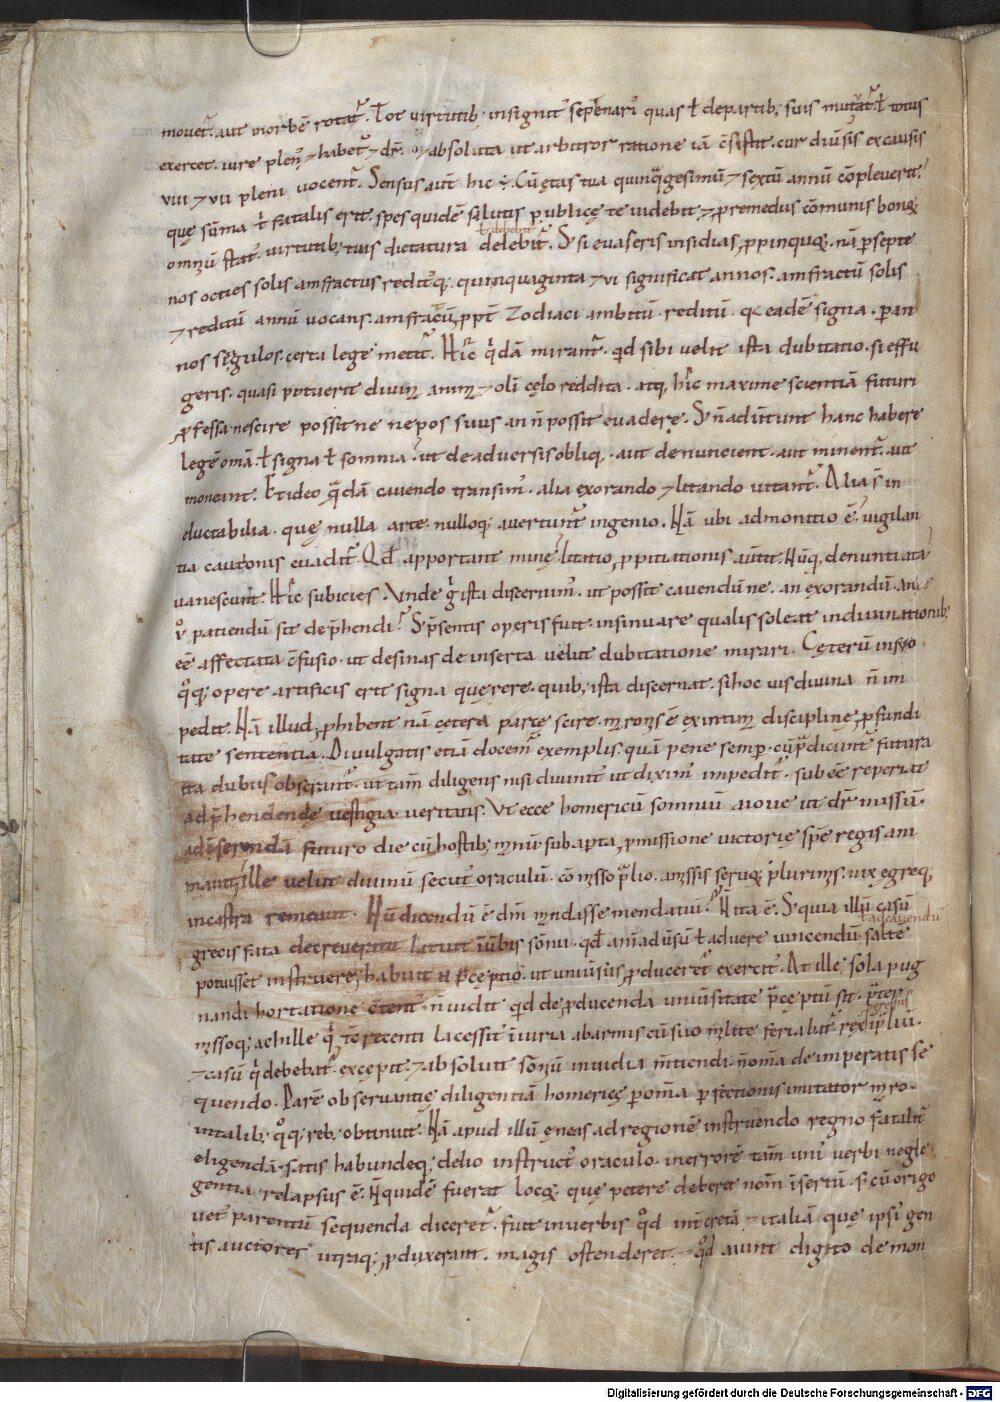 mouet᷒. aut inorbē rotat᷒. Tot uirtutib; insignit᷒ septenari᷒ quas ł departib; suis mutuat᷒ ł totus
exercet. iure plen᷒ ⁊ habet᷒ ⁊ dr̄. ⁊ absoluta ut arbitror ratione iā c̄stitit. cur diuersis excausis
viii ⁊ vii pleni uocent᷒. Sensus aut̄ hic ÷. Cū ętas tua quinq̄gesimū ⁊ sextū annū cōpleuerit.
quę sūma tͥ fatalis erit. spes quidē salutis publicę te uidebit ⁊ p remediis cōmunis bonoꝝ
ł debebit
omnīū stat᷒. uirtutib; tuis dictatura delebit᷒. S; si euaseris insidias, ppinquoꝝ. nā p septe
nos octies solis amfractus reditusq; quinquaginta ⁊ vi significat annos. amfractū solis
⁊ reditū annū uocans. amfractū, ppt̄ zodiaci ambitū. reditū. qͥ eadē signa. p an
nos singulos. certa lege metit᷒. Hͥc qͥdā mirant᷒. qd sibi uelit ista dubitatio. si effu
geris. quasi potuerit diuina anima ⁊ olī cęlo reddita. atq; hͥc maxime scientiā futuri
pfessa nescire possit ne nepos suus an ñ possit euadere. S; ñ aduertunt hanc habere
legē omā. ł signa ł somnia. ut de aduersis obliq; aut denuncient. aut minent᷒. aut
moneant. Et ideo q̄dā cauendo transim᷒. alia exorando ⁊ litando uitant᷒. Alia s̄ in
eluctabilia. quę nulla arte nulloq; auertunt᷒ ingenio. Nā ubi admonitio ē. uigilan
tia cautionis euadit᷒. Qđ apportant minę. litatio, ppitiationis auertit. Nūq; denuntiata
uanescunt. Hͥc subicies. Unde gͥ ista discernim᷒. ut possit cauendū ne. an exorandū. an
ů patiendū sit dep̄hendi? S; p̄sentis operis fuit. insinuare qualis soleat in diuinationib;
eē affectata c̄fusio. ut desinas de inserta uelut dubitatione mirari. Cęterū in suo
qͦq; opere artificis erit signa quęrere. quib; ista discernat. si hoc uis diuina ñ im
pedit. Nā illud, phibent nā cętera parcę scire. maronis ē ex intima disciplinę, pfundi
tate sententia. Diuulgatis etiā docem᷒ exemplis. quā pene semp. cū p̄dicunt᷒ futura
ita dubiis obserant᷒. ut tam̄ diligens nisi diuinit᷒ ut dixim᷒ impedit᷒. subeē reperiat
ad p̄hendendę uestigia ueritatis. Ut ecce homericū somniū a ioue ut dr̄ missū.
ad c̄serendā futuro die cū hostib; manū sub aperta, pmissione uictorię spē regis ani
mauit. Ille uelut diuinū secut᷒ oraculū. comisso p̄lio. amissis seruoꝝ plurimis. uix ęgreq;
in castra remeauit. Nū dicendū ē dm̄ mandasse mendatiū? Ñ ita ē. S; quia illū casū
ł ad cauendū
grecis fata decreuerant latuit ī uerbis somnii. qđ animaduersū ł ad uere uincendū saltē
potuisset instruere, habuit n p̄cęptio. ut uniuersus, pduceret᷒ exercit᷒. At ille sola pug
nandi hortatione c̄tent᷒. ñ uidit qͥd de, pducenda uniuersitate p̄cęptū sit. p̄ter
missoq; achille qͥ tc̄ recenti lacessit᷒ iniuria ab armis cū suo milite feriabat᷒. rex p̄liū.
⁊ casū qͥ debebat᷒ excepit. ⁊ absoluit somniū inuidia mentiendi. ñ omīa de imperatis se
quendo. Parē obseruantię diligentiā homericę p omīa pfectionis imitator maro.
in talib; qͦq; reb; obtinuit. Nā apud illū ęneas ad regionē instruendo regno fatalit᷒
eligendā. satis habundeq; delio instruct᷒ oraculo. in errorē tam̄ uni᷒ uerbi negle
gentia relapsus ē. Ñ quidē fuerat locoꝝ quę petere deberet nom̄ insertū. s; cū origo
uet᷒ parentū sequenda diceret᷒. fuit in uerbis qͦd int̄ cretā ⁊ italiā quę ipsi᷒ gen
tis auctores utraq; pduxerant. magis ostenderet. ⁊ qͦd aiunt digito demon
Digitalisierung gefördert durch die Deutsche Forschungsgemeinschaft - DFG